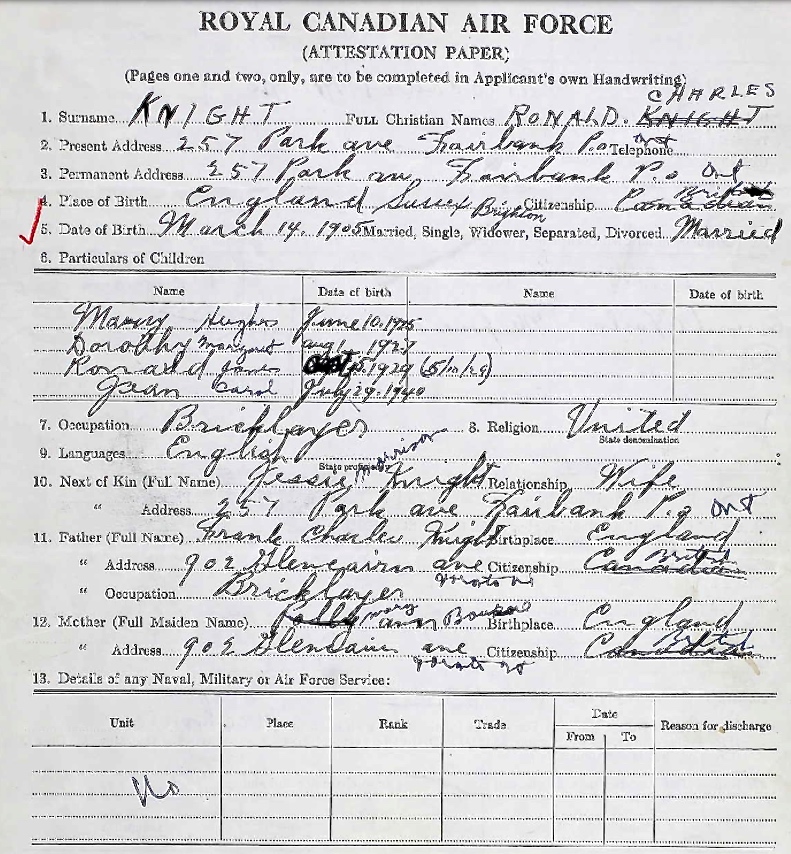 ROYAL CANADIAN AIR FORCE
(ATTESTATION PAPER)
(Pages one and two, only, are to be completed in Applicant's own Handwriting)
CHARLES
1. Surname KNIGHT FULL Christian Names RONALD. KNIGHT
2. Present Address 257 Park ave Fairbank P.o Telephone Ont
3. Permanent Address 257 Park av Fairbank P.o Ont
4. Place of Birth England Sussex Brighton Citizenship Canadian British
5. Date of Birth March 14. 1905 Married, Single, Widower, Separated, Divorced Married
6. Particulars of Children
Name Date of birth Name Date of birth
Hughes June 10. 1925
Dorothy Margaret aug 1 1927
Ronald James 15 1929 (5/11/29)
Jean Carol July 29 1940
7. Occupation Bricklayer 8. Religion United
State denomination
9. Languages English
State proficiency
10. Next of Kin (Full Name) Jessie Morrison Knight Relationship Wife
" Address 257 Park ave Fairbank P.o Ont
11. Father (Full Name) Frank Charles Knight Birthplace England
" Address 902 Glencairn ave Toronto Citizenship Canadian British
" Occupation Bricklayer
12. Mother (Full Maiden Name) Polly Mary ann Birthplace England
" Address 902 Glencairn ave Toronto Citizenship Canadian British
13. Details of any Naval, Military or Air Force Service:
Unit Place Rank Trade Date Reason for discharge
From To
No